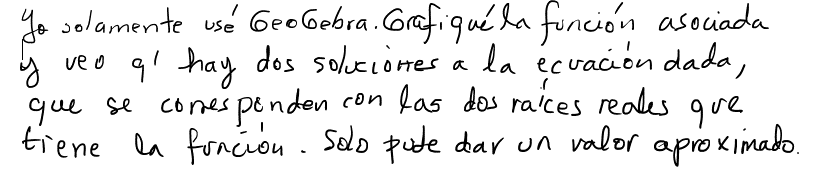 Yo solamente usé GeoGebra. Grafiqué la función asociada
y veo q' hay dos soluciones a la ecuación dada,
que se corresponden con las dos raíces reales que
tiene la función. Solo pude dar un valor aproximado.